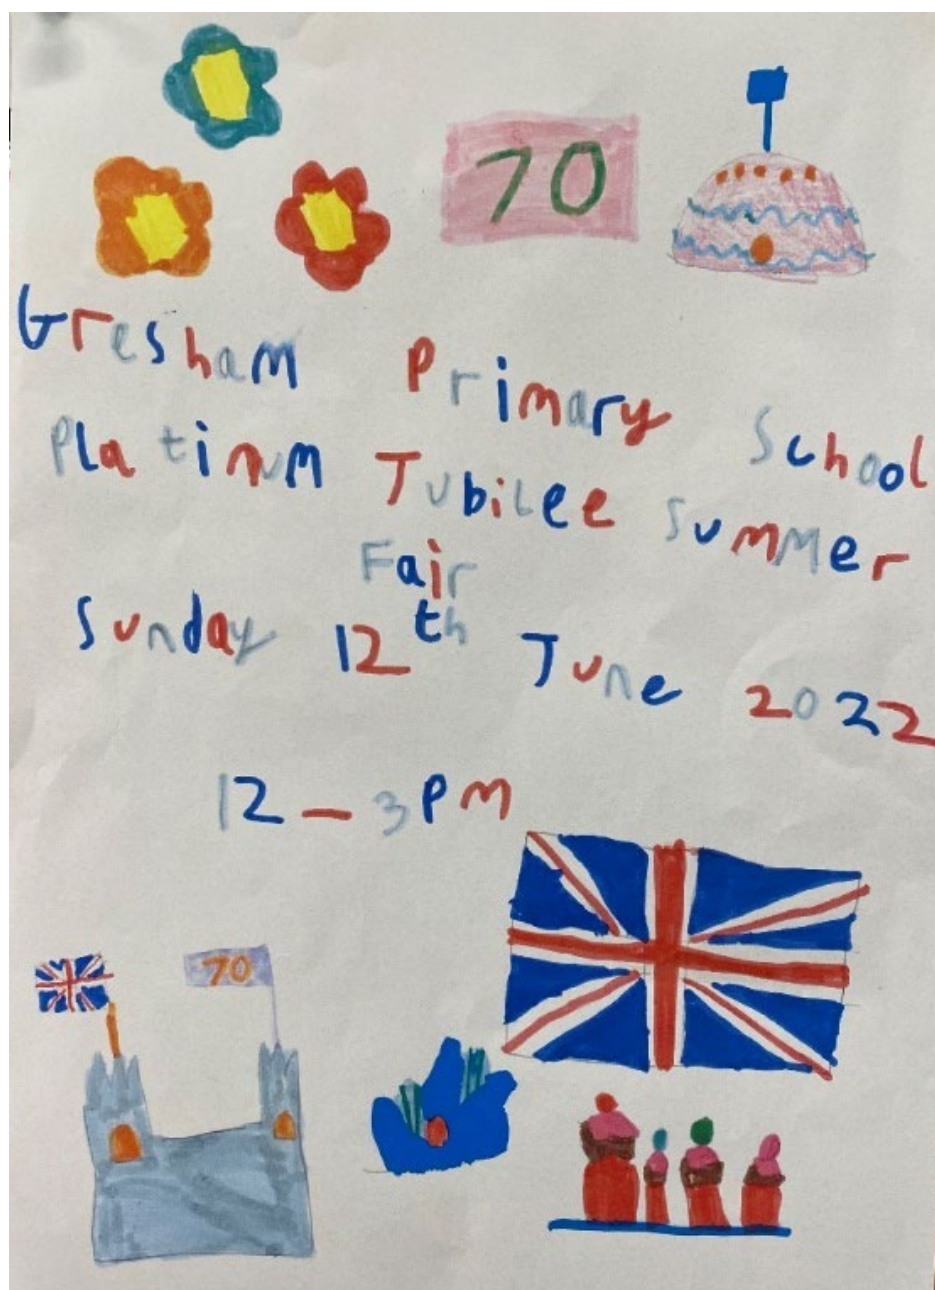 70
Gresham Primary School
Platinum Jubilee Summer
Fair
Sunday 12th June 2022
12 - 3pm
70